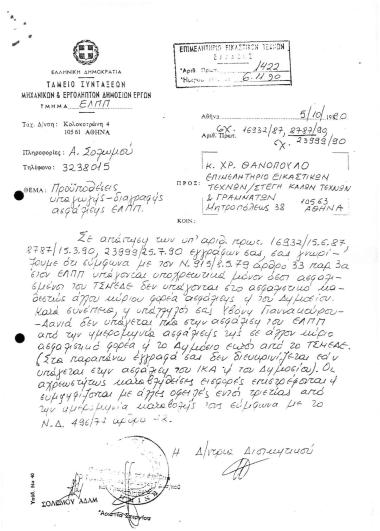 ΕΠΙΜΕΛΗΤΗΡΙΟ ΕΙΚΑΣΤΙΚΩΝ ΤΕΧΝΩΝ
ΕΛΛΑΔΟΣ
Αριθ. Πρωτ. 1422
6.11.90
ΕΛΛΗΝΙΚΗ ΔΗΜΟΚΡΑΤΙΑ
ΤΑΜΕΙΟ ΣΥΝΤΑΞΕΩΝ
ΜΗΧΑΝΙΚΩΝ & ΕΡΓΟΛΗΠΤΩΝ ΔΗΜΟΣΙΩΝ ΕΡΓΩΝ
ΤΜΗΜΑ ΕΛΠΠ
Ταχ. Δ/νση: Κολοκοτρώνη 4
10561 ΑΘΗΝΑ
Αθήνα 5/10/1990
Αριθ. Πρωτ. σχ. 16932/87, 8787/90
σχ. 23999/90
Πληροφορίες: Α. Σολωμού
Τηλέφωνο: 3238015
ΘΕΜΑ: Προϋποθέσεις
υπαγωγής-διαγραφής
ασφάλισης ΕΛΠΠ.
ΠΡΟΣ:
κ. ΧΡ. ΘΑΝΟΠΟΥΛΟ
ΕΠΙΜΕΛΗΤΗΡΙΟ ΕΙΚΑΣΤΙΚΩΝ
ΤΕΧΝΩΝ/ΣΤΕΓΗ ΚΑΛΩΝ ΤΕΧΝΩΝ
& ΓΡΑΜΜΑΤΩΝ
Μητροπόλεως 38 10563
ΑΘΗΝΑ
ΚΟΙΝ:
Σε απάντηση των υπ' αριθ. πρωτ. 16932/15.6.87,
8787/15.3.90, 23999/25.7.90 εγγράφων σας, σας γνωρί-
ζουμε ότι σύμφωνα με τον Ν. 915/8.5.79 άρθρο 33 παρ. 3α
στον ΕΛΠΠ υπάγονται υποχρεωτικά μόνον όσοι ασφαλι-
σμένοι του ΤΣΜΕΔΕ δεν υπάγονται στο ασφαλιστικό κα-
θεστώς άλλου κύριου φορέα ασφάλισης ή του Δημοσίου.
Κατά συνέπεια, η υπάλληλός σας Υβόνη Γιαννακούρου-
δεν υπάγεται πια στην ασφάλιση του ΕΛΠΠ
από την ημερομηνία ασφάλισής της σε άλλον κύριο
ασφαλιστικό φορέα ή το Δημόσιο εκτός από το ΤΣΜΕΔΕ.
(Στα παραπάνω έγγραφά σας δεν διευκρινίζεται εάν
υπάγεται στην ασφάλιση του ΙΚΑ ή του Δημοσίου). Οι
αχρεωστήτως καταβληθείσες εισφορές επιστρέφονται ή
συμψηφίζονται με άλλες οφειλές εντός τριετίας από
την ημερομηνία καταβολής τους σύμφωνα με το
Ν.Δ. 496/74 άρθρο
Η Δ/ντρια Διοικητικού
ΣΟΛΩΜΟΥ ΑΔΑΜ.
Υποδ. Νο 40